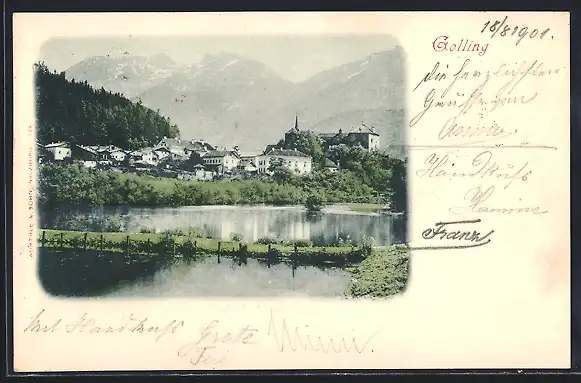 16/8 1901.
Golling
die herzlichsten
Grüsse von
Handkuß
Hermine
Franz
Mit Handkuß Grete Mimi